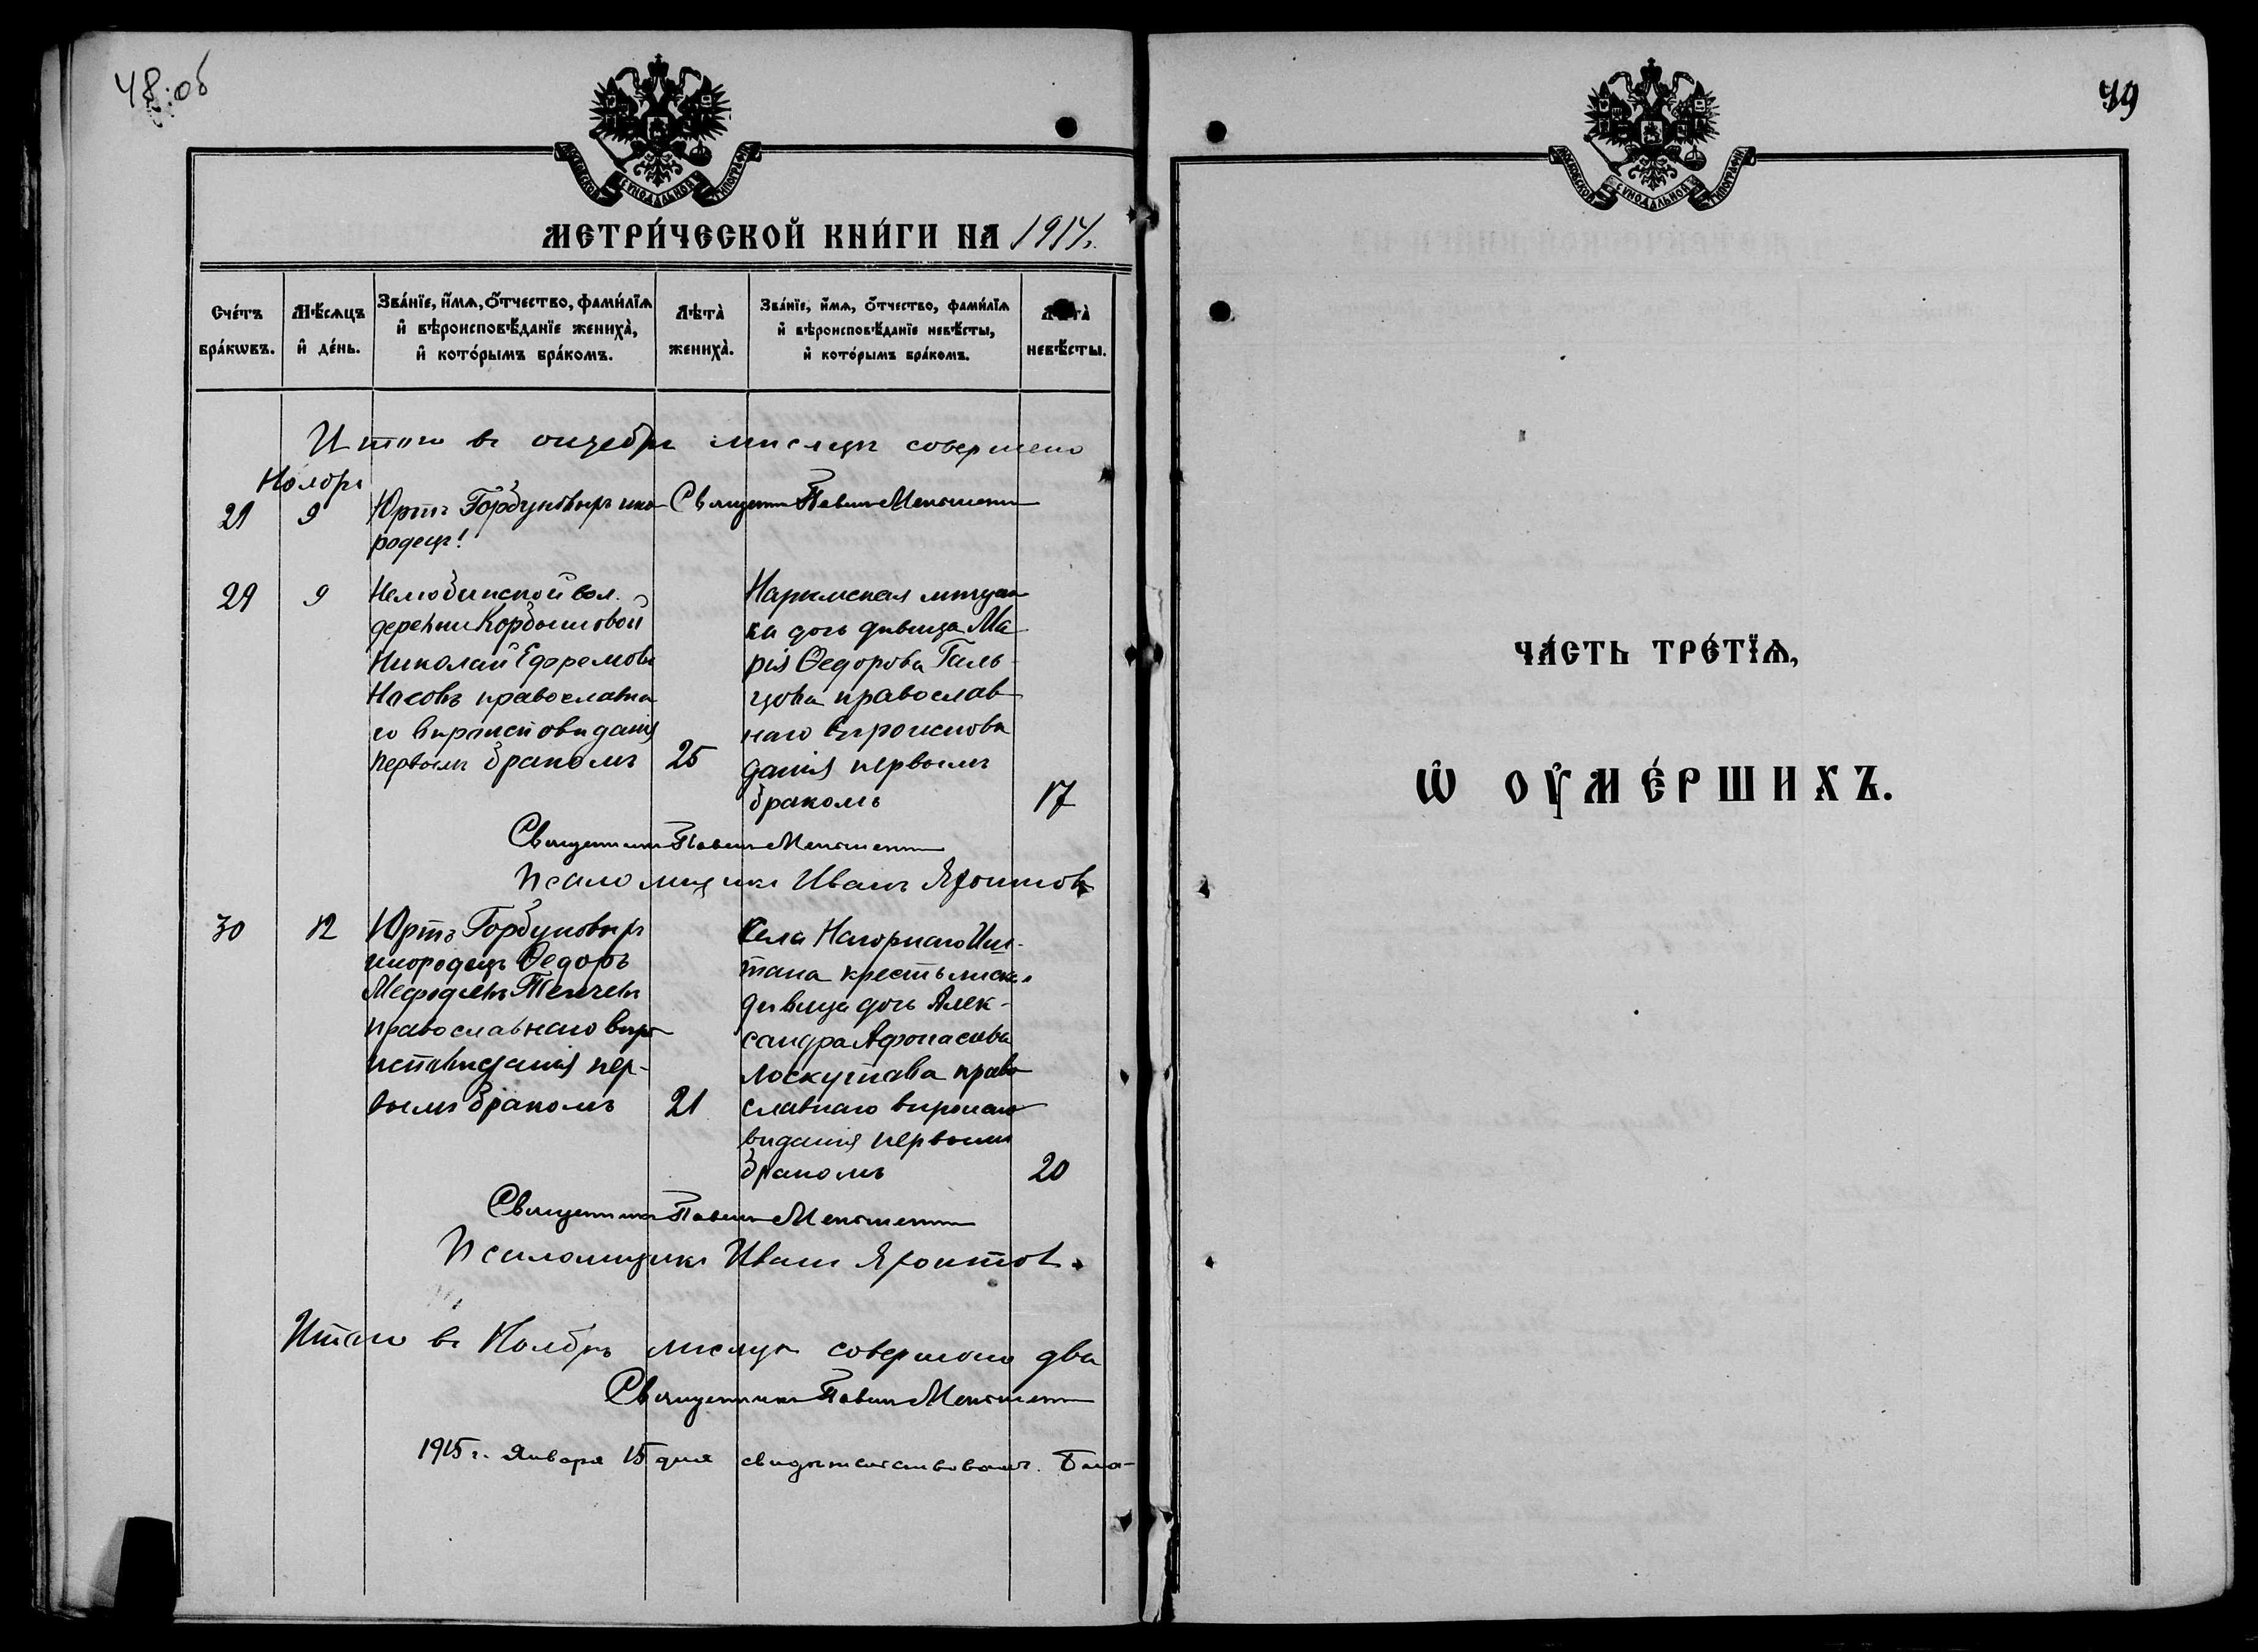 48.об
МОСКОВСКОЙ СѴНОДАЛЬНОЙ ТИПОГРАФІИ
МЕТРИ́ЧЕСКОЙ КНИ́ГИ НА 1914.
Сче́тъ бра́кѡвъ.
Мѣ́сѧцъ и҆ де́нь.
Зва́нїе, и҆́мѧ, ѻ҆́тчество, фами́лїѧ
и҆ вѣроисповѣ́данїе жениха̀,
и҆ кото́рымъ бра́комъ.
Лѣта̀ жениха̀.
Зва́нїе, и҆́мѧ, ѻ҆́тчество, фами́лїѧ
и҆ вѣроисповѣ́данїе невѣ́сты,
и҆ кото́рымъ бра́комъ.
Лѣта̀ невѣ́сты.
Итого въ октябрѣ мѣсяцѣ совершено
Ноябрь
29 9 Юртъ Горбуновыхъ ино- Священникъ Павелъ
родецъ!
29 9 Нелюбинской вол.
деревни Кордышовой
Николай Ефремовъ
Насовъ православна
го вѣроисповѣданія
первымъ бракомъ 25
Нарымская мѣщан
ка дочь дѣвица Ма
рія Ѳедорова Галь-
цова православ
наго вѣроисповѣ
данія первымъ
бракомъ 17
Священникъ Павелъ
Псаломщикъ Иванъ
30 12 Юртъ Горбуновыхъ
инородецъ Ѳедоръ
православнаго вѣро
исповѣданія пер-
вымъ бракомъ 21
Села Нагорнаго Иш-
тана крестьянская
дѣвица дочь Алек-
сандра Афонасьева
Лоскутова право
славнаго вѣроиспо
вѣданія первымъ
бракомъ 20
Священникъ Павелъ
Псаломщикъ Иванъ
Итого въ Ноябрѣ мѣсяцѣ совершено два
Священникъ Павелъ
1915 г. Января 15 дня свидѣтельствовалъ. Бла-
49
МОСКОВСКОЙ СѴНОДАЛЬНОЙ ТИПОГРАФІИ
ЧА́СТЬ ТРЕ́ТЇѦ,
Ѡ҆ ОУ҆МЕ́РШИХЪ.